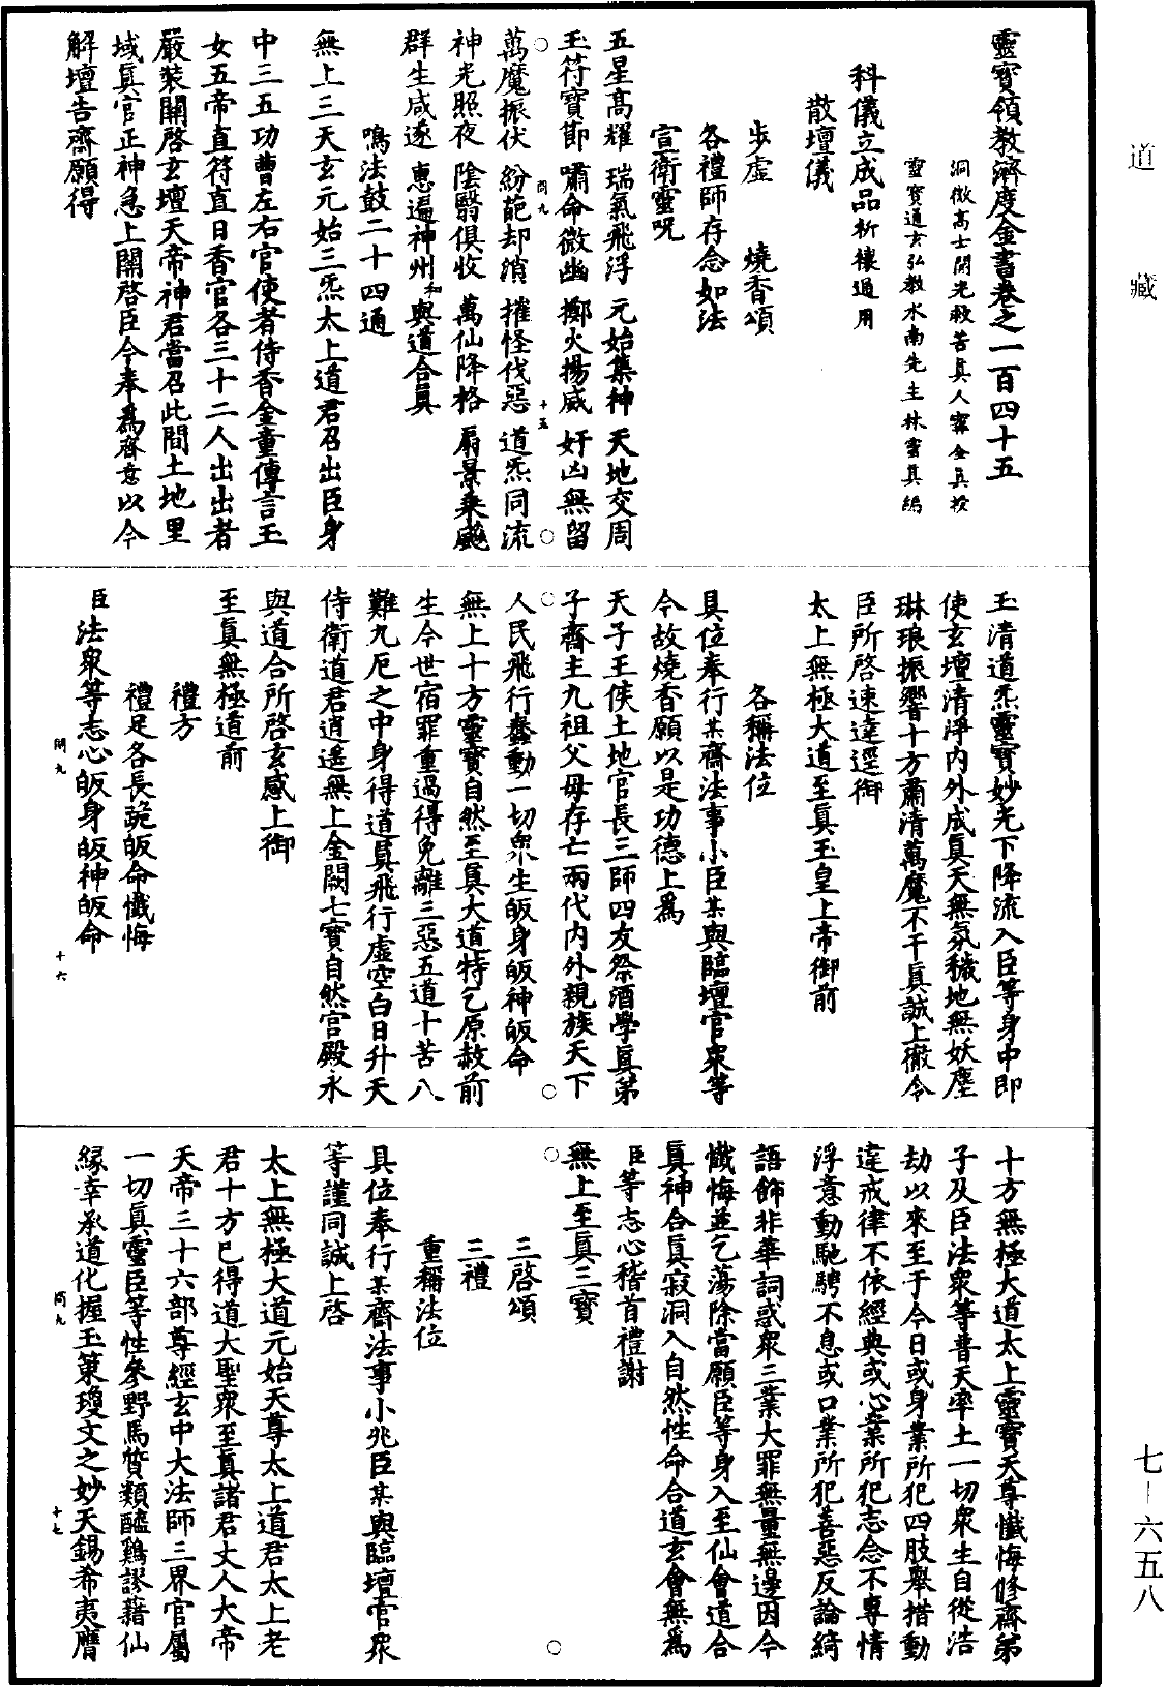 道藏
靈寶領教濟度金書卷之一百四十五
洞微高士開光救苦真人甯全真校
靈寶通玄弘教水南先生林靈真編
科儀立成品祈禳通用
散壇儀
步虛　燒香頌
各禮師存念如法
宣衛靈呪
五星高耀　瑞氣飛浮　元始集神　天地交周
玉符寶節　嘯命微幽　擲火揚威　奸凶無留
萬魔振伏　紛葩却消　摧怪伐惡　道炁同流
神光照夜　陰翳俱收　萬仙降格　扇景乘飈
群生咸遂　惠遍神州和與道合真
鳴法鼓二十四通
無上三天玄元始三炁太上道君召出臣身
中三五功曹左右官使者侍香金童傳言玉
女五帝直符直日香官各三十二人出出者
嚴裝關啓玄壇天帝神君當召此間土地里
域真官正神急上關啓臣今奉爲齋意以今
解壇告齋願得
玉清道炁靈寶妙光下降流入臣等身中即
使玄壇清淨內外成真天無氛穢地無妖塵
琳琅振響十方肅清萬魔不干真誠上徹令
臣所啓速達逕御
太上無極大道至真玉皇上帝御前
各稱法位
具位奉行某齋法事小臣某與臨壇官衆等
今故燒香願以是功德上爲
天子王侯土地官長三師四友祭酒學真弟
子齋主九祖父母存亡兩代內外親族天下
人民飛行蠢動一切衆生皈身皈神皈命
無上十方靈寶自然至真大道特乞原赦前
生今世宿罪重過得免離三惡五道十苦八
難九厄之中身得道真飛行虛空白日升天
侍衛道君逍遙無上金闕七寶自然宮殿永
與道合所啓玄感上御
至真無極道前
禮方
禮足各長跪皈命懺悔
臣法衆等志心皈身皈神皈命
十方無極大道太上靈寶天尊懺悔修齋弟
子及臣法衆等普天率土一切衆生自從浩
劫以來至于今日或身業所犯四肢舉措動
違戒律不依經典或心業所犯志念不專情
浮意動馳騁不息或口業所犯善惡反論綺
語飾非華詞惑衆三業大罪無量無邊因今
懺悔並乞蕩除當願臣等身入至仙會道合
真神合真寂洞入自然性命合道玄會無爲
臣等志心稽首禮謝
無上至真三寶
三啓頌
三禮
重稱法位
具位奉行某齋法事小兆臣某與臨壇官衆
等謹同誠上啓
太上無極大道元始天尊太上道君太上老
君十方已得道大聖衆至真諸君丈人大帝
天帝三十六部尊經玄中大法師三界官屬
一切真靈臣等性參野馬質類醯鷄謬藉仙
緣幸承道化握玉篆瓊文之妙天錫希夷膺
七－六五八